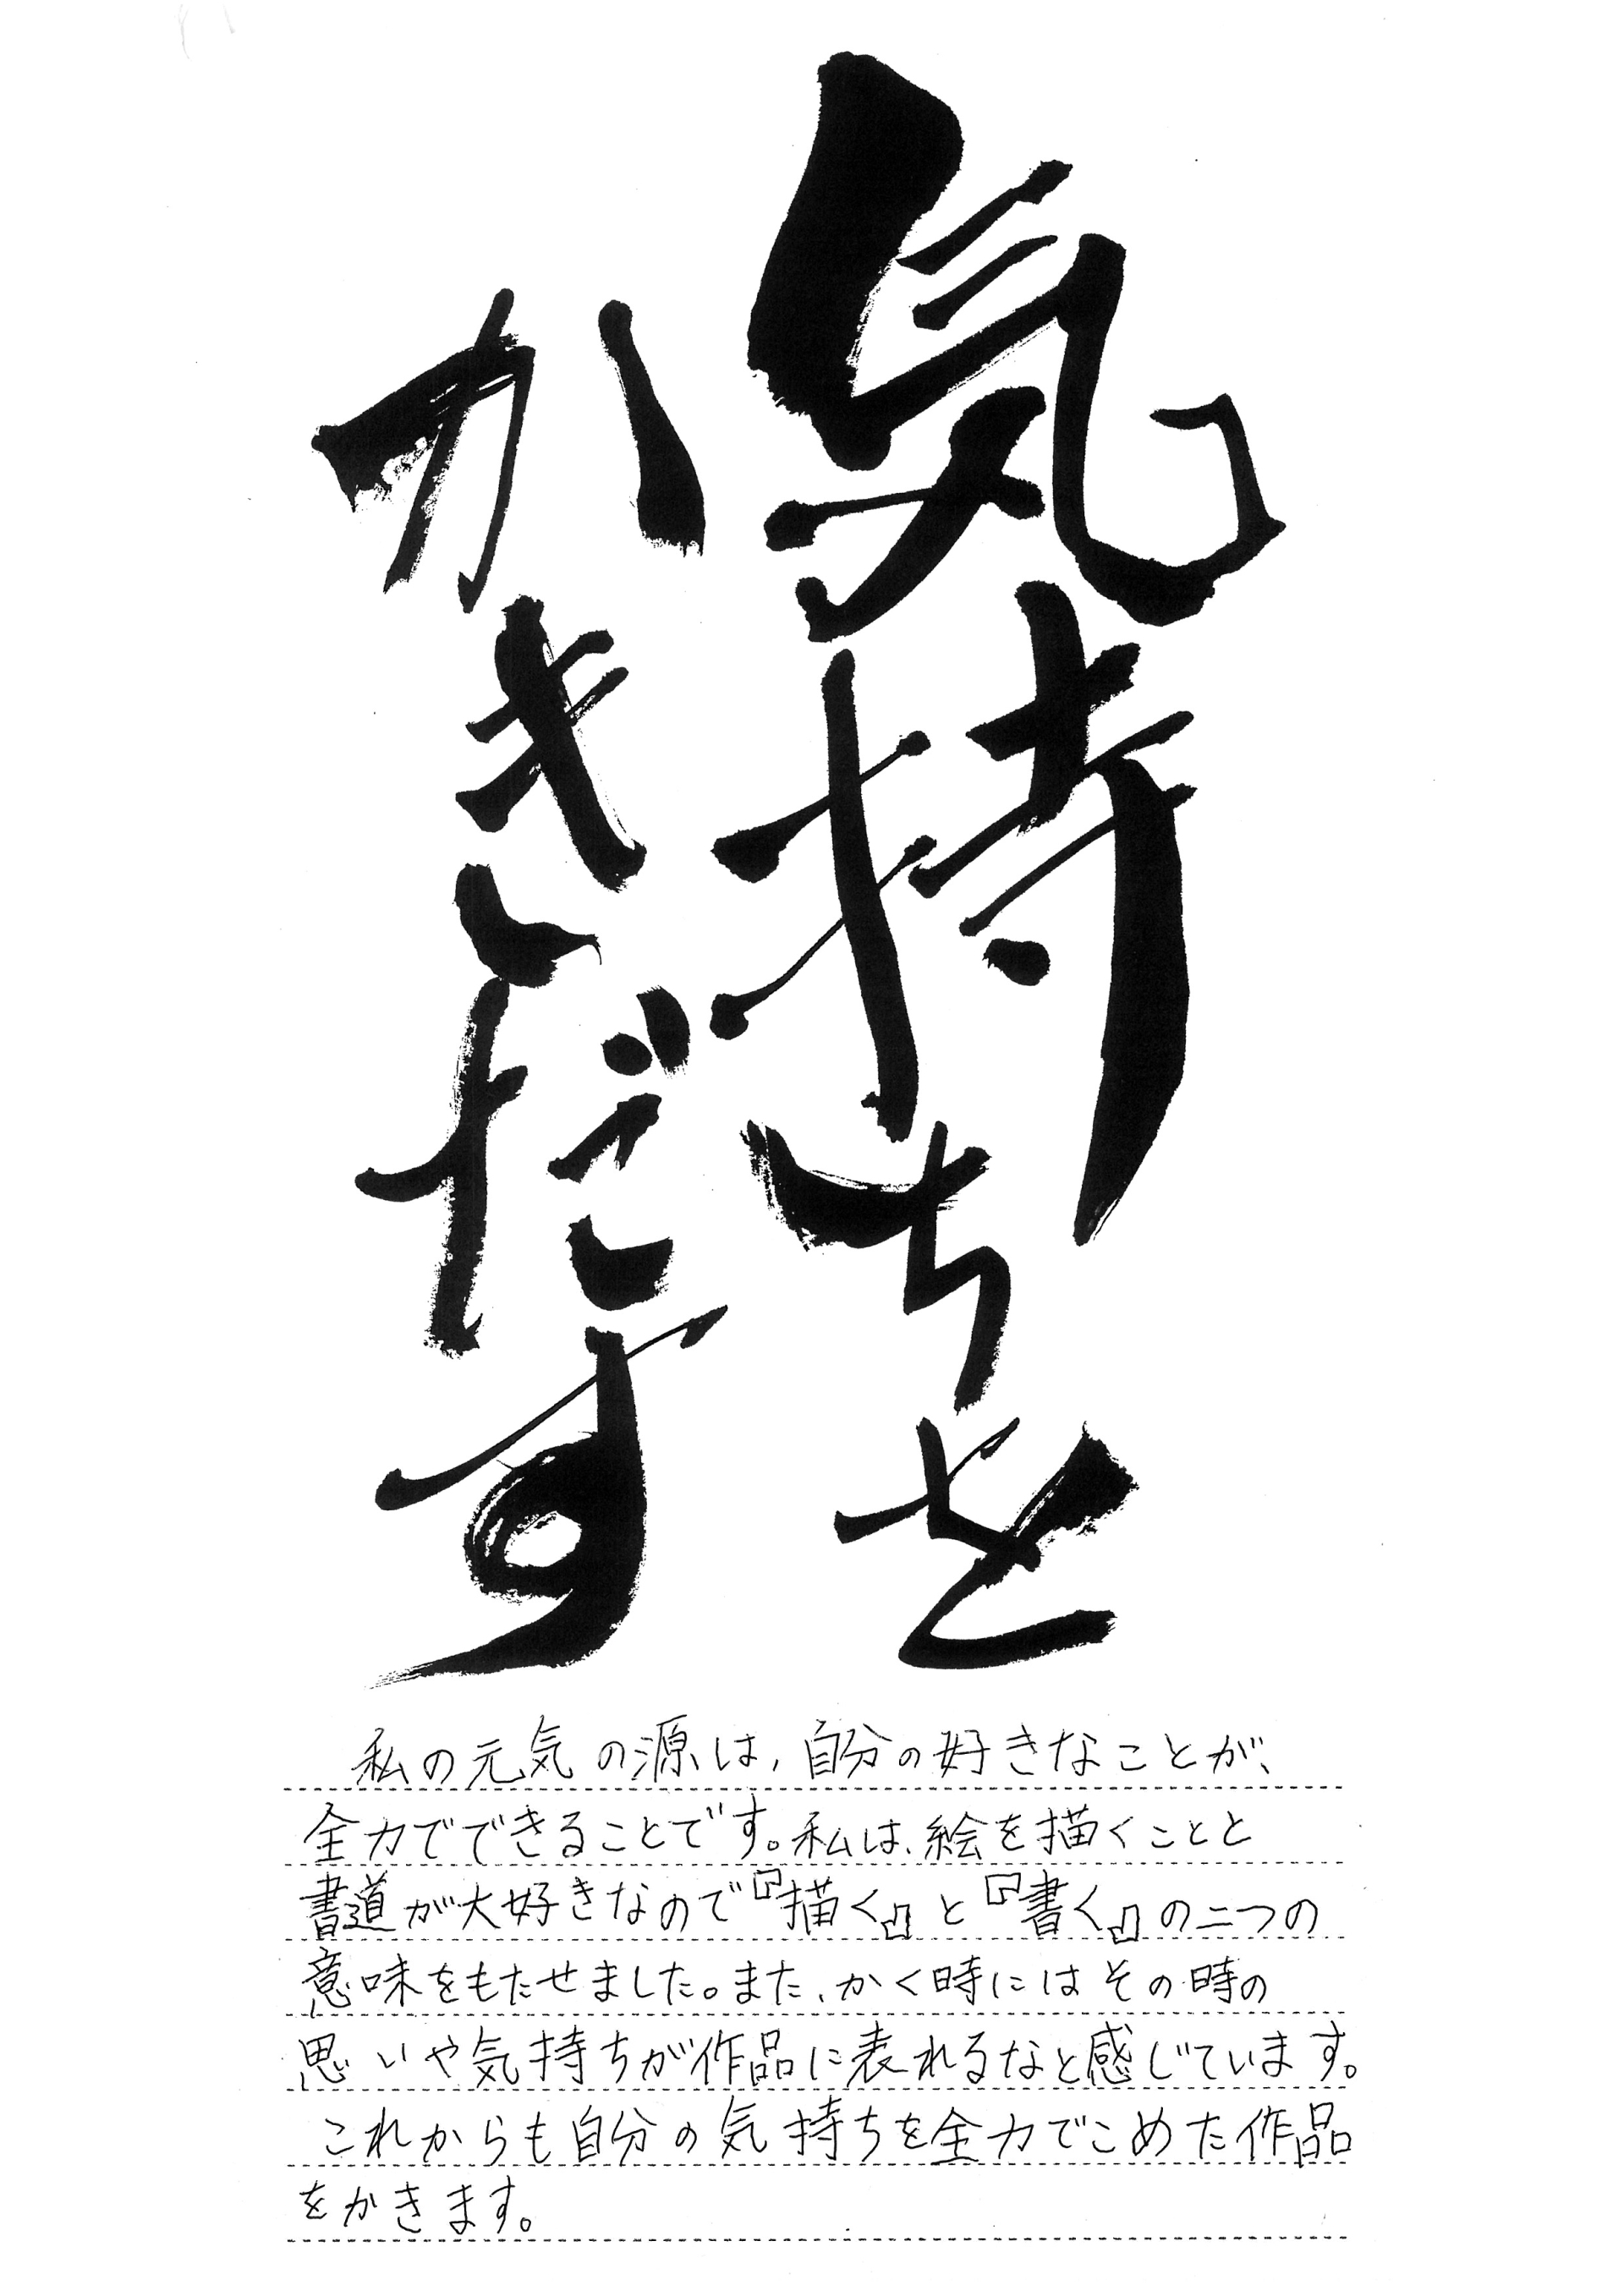 気持ちを
かきだす
私の元気の源は、自分の好きなことが、
全力でできることです。私は、絵を描くことと
書道が大好きなので『描く』と『書く』の二つの
意味をもたせました。また、かく時にはその時の
思いや気持ちが作品に表れるなと感じています。
これからも自分の気持ちを全力でこめた作品
をかきます。